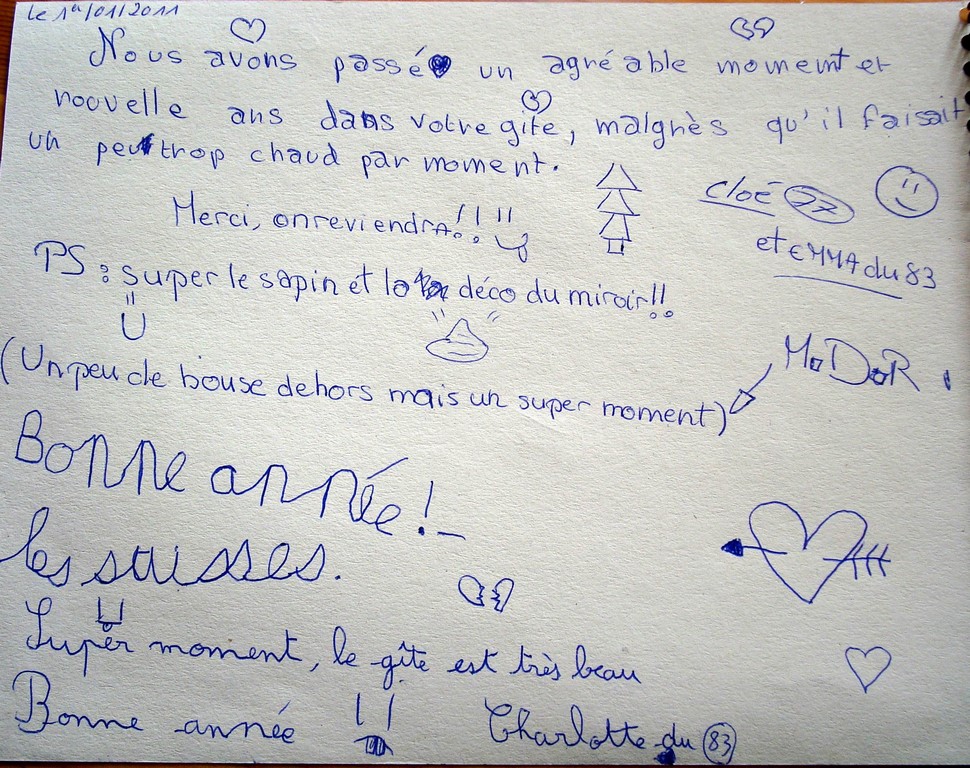 le 1er/01/2011
Nous avons passé un agréable moment et
nouvelle ans dans votre gîte, malgrès qu'il faisait
un peu trop chaud par moment.
Merci, on reviendra!!!!
cloé 77
et EMMA du 83
PS: super le sapin et la déco du miroir!!
MoDoR
(Un peu de bouse dehors mais un super moment)
Bonne année!
les suisses.
Super moment, le gîte est très beau
Bonne année !!
Charlotte du 83